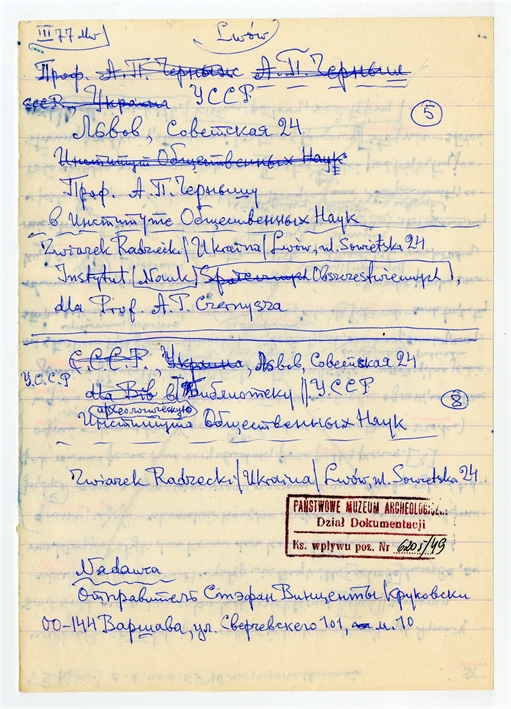 III 77 Mr
Lwów
Проф. А.П. Черныш А.П. Черныш
СССР, Украина УССР
5
Львов, Советская 24
Институт Общественных Наук
Проф. А.П. Чернышу
в Институте Общественных Наук
Związek Radziecki /Ukraina/ Lwów, ul. Sowietska 24
Instytut [Nauk] Społecznych Obszczestwiennych],
dla Prof. A.P. Czernysza
С.С.С.Р., Украина, Львов, Советская 24
У.С.С.Р
dla Bib в Библиотеку // У.С.С.Р
8
археологическую
Института Общественных Наук
Związek Radziecki /Ukraina/ Lwów, ul. Sowietska 24
PAŃSTWOWE MUZEUM ARCHEOLOGICZN
Dział Dokumentacji
Ks. wpływu poz. Nr 6201/49
Nadawca
Отправитель Стэфан Винценты Круковски
00-144 Варшава, ул. Сверчевского 101, м. 10